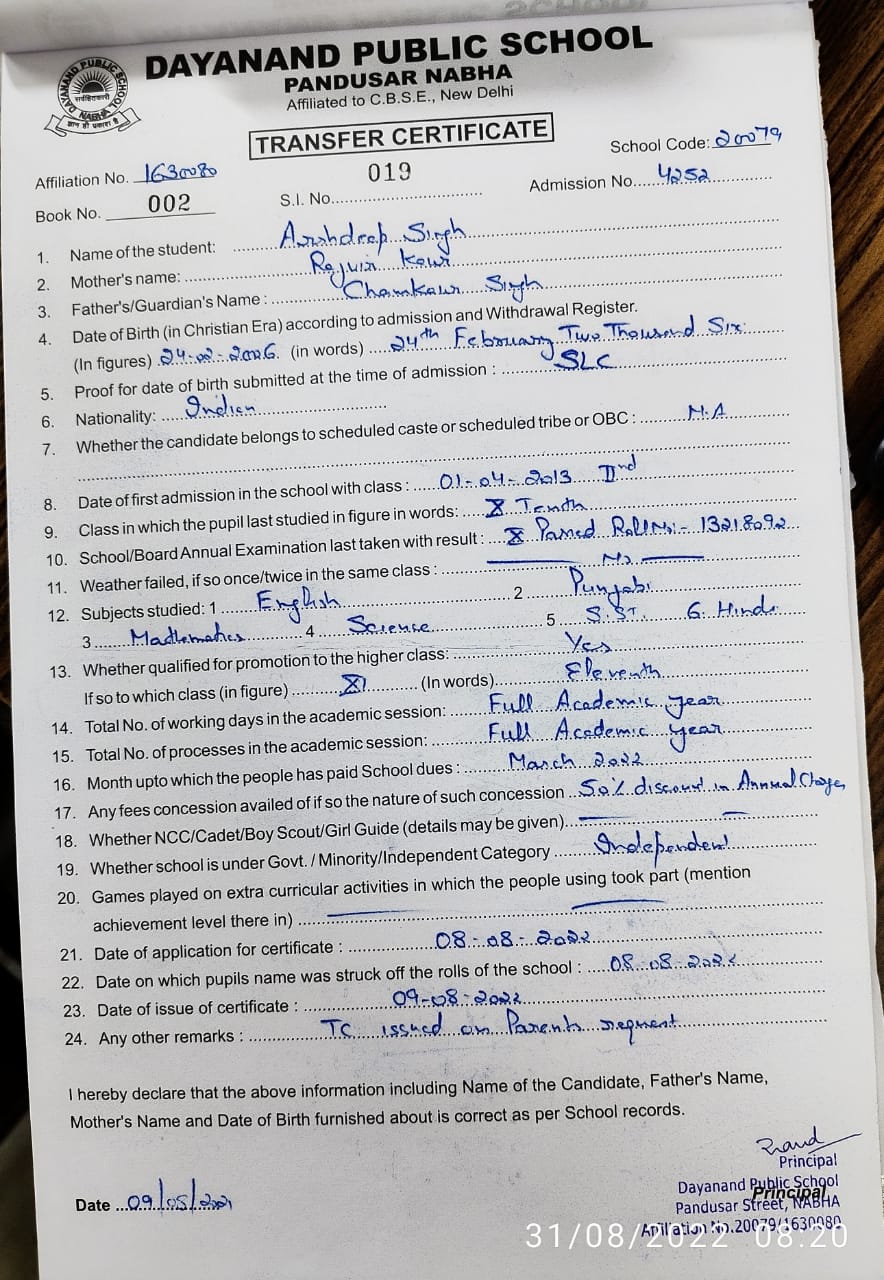 DAYANAND PUBLIC SCHOOL
PANDUSAR NABHA
Affiliated to C.B.S.E., New Delhi
DAYANAND PUBLIC SCHOOL
NABHA
TRANSFER CERTIFICATE
School Code: 20079
Affiliation No. 1630080
019
Admission No. 4252
Book No. 002
S.I. No.
1. Name of the student: Arshdeep Singh
2. Mother's name: Rajvir Kaur
3. Father's/Guardian's Name : Chamkaur Singh
4. Date of Birth (in Christian Era) according to admission and Withdrawal Register.
(In figures) 24-02-2006. (in words) 24th February Two Thousand Six
5. Proof for date of birth submitted at the time of admission : SLC
6. Nationality: Indian
7. Whether the candidate belongs to scheduled caste or scheduled tribe or OBC : N.A
8. Date of first admission in the school with class : 01-04-2013 IInd
9. Class in which the pupil last studied in figure in words: X Tenth
10. School/Board Annual Examination last taken with result : X Passed Roll No:- 13218092
11. Weather failed, if so once/twice in the same class : No
12. Subjects studied: 1 English 2 Punjabi
3 Mathematics 4 Science 5 S.ST. 6. Hindi
13. Whether qualified for promotion to the higher class: Yes
If so to which class (in figure) XI (In words) Eleventh
14. Total No. of working days in the academic session: Full Academic year
15. Total No. of processes in the academic session: Full Academic year
16. Month upto which the people has paid School dues : March 2022
17. Any fees concession availed of if so the nature of such concession 50% discount in Annual Charges
18. Whether NCC/Cadet/Boy Scout/Girl Guide (details may be given)
19. Whether school is under Govt. / Minority/Independent Category Independent
20. Games played on extra curricular activities in which the people using took part (mention
achievement level there in)
21. Date of application for certificate : 08-08-2022
22. Date on which pupils name was struck off the rolls of the school : 08-08-2022
23. Date of issue of certificate : 09-08-2022
24. Any other remarks : TC issued on Parents request
I hereby declare that the above information including Name of the Candidate, Father's Name,
Mother's Name and Date of Birth furnished about is correct as per School records.
Principal
Dayanand Public School
Principal
Date 09/
Pandusar Street, NABHA
Affiliation No.20079/1630080
31/08/2022 08:20